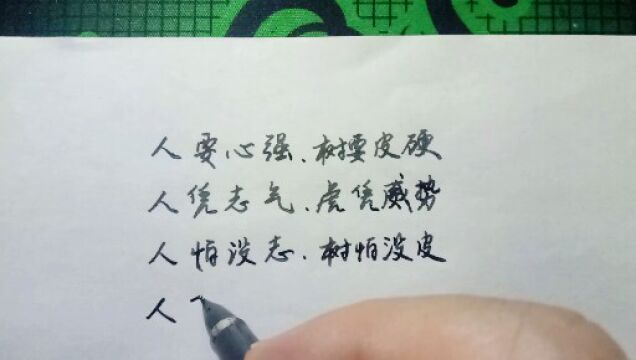 人要心强、树要皮硬
人凭志气、虎凭威势
人怕没志、树怕没皮
人